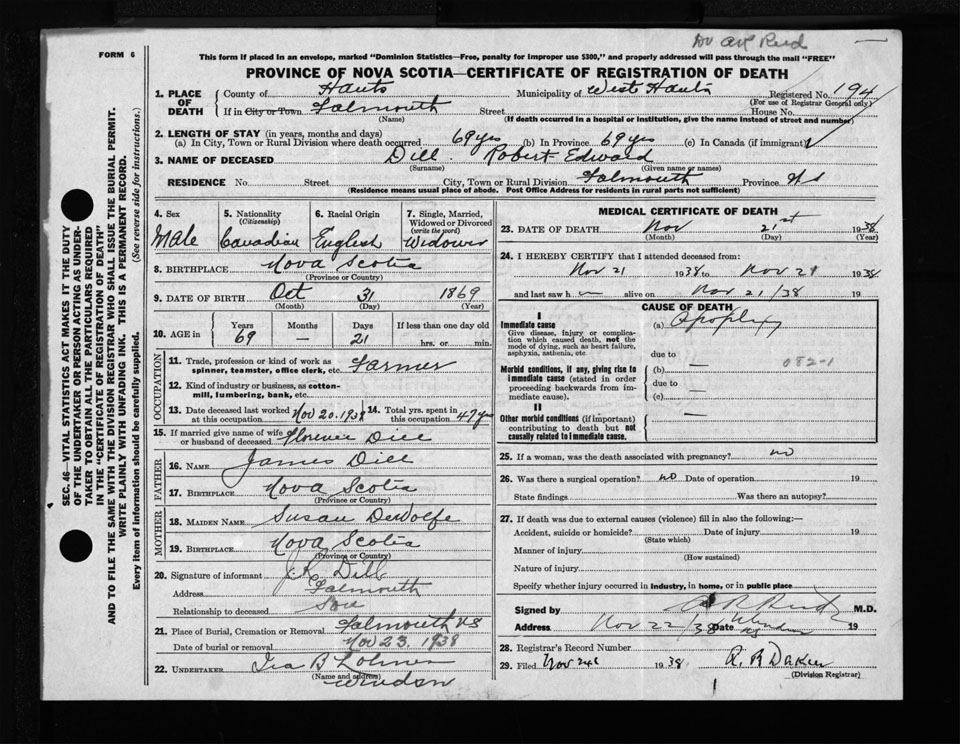 Dr Reid
FORM 6
This form if placed in an envelope, marked "Dominion Statistics—Free, penalty for improper use $300," and properly addressed will pass through the mail "FREE"
PROVINCE OF NOVA SCOTIA—CERTIFICATE OF REGISTRATION OF DEATH
1. PLACE OF DEATH County of Hants Municipality of West Hants Registered No. 194
(For use of Registrar General only)
If in City or Town Falmouth Street House No.
(Name) (If death occurred in a hospital or institution, give the name instead of street and number)
2. LENGTH OF STAY (in years, months and days)
(a) In City, Town or Rural Division where death occurred 69 yrs (b) In Province 69 yrs (c) In Canada (if immigrant)
3. NAME OF DECEASED Dill Robert Edward
(Surname) (Given name or names)
RESIDENCE No. Street City, Town or Rural Division Falmouth Province NS
(Residence means usual place of abode. Post Office Address for residents in rural parts not sufficient)
4. Sex Male
5. Nationality (Citizenship) Canadian
6. Racial Origin English
7. Single, Married, Widowed or Divorced (write the word) Widower
8. BIRTHPLACE Nova Scotia
(Province or Country)
9. DATE OF BIRTH Oct 31 1869
(Month) (Day) (Year)
10. AGE in Years Months Days If less than one day old
69 — 21 hrs. or min.
OCCUPATION
11. Trade, profession or kind of work as spinner, teamster, office clerk, etc. Farmer
12. Kind of industry or business, as cotton-mill, lumbering, bank, etc.
13. Date deceased last worked at this occupation Nov 20. 1938
14. Total yrs. spent in this occupation 47 yrs
15. If married give name of wife or husband of deceased Florence Dill
FATHER
16. NAME James Dill
17. BIRTHPLACE Nova Scotia
(Province or Country)
MOTHER
18. MAIDEN NAME Susan DeWolfe
19. BIRTHPLACE Nova Scotia
(Province or Country)
20. Signature of informant Dill
Address Falmouth
Relationship to deceased Son
21. Place of Burial, Cremation or Removal Falmouth NS
Date of burial or removal Nov 23. 1938
22. UNDERTAKER Ira B
(Name and address)
Windsor
MEDICAL CERTIFICATE OF DEATH
23. DATE OF DEATH Nov 21st 1938
(Month) (Day) (Year)
24. I HEREBY CERTIFY that I attended deceased from:
Nov 21 1938 to Nov 21 1938
and last saw h alive on Nov 21/38 19
CAUSE OF DEATH
I
Immediate cause
Give disease, injury or complication which caused death, not the mode of dying, such as heart failure, asphyxia, asthenia, etc.
(a) Apoplexy
due to
Morbid conditions, if any, giving rise to immediate cause (stated in order proceeding backwards from immediate cause).
(b) — 082-1
due to
(c) —
II
Other morbid conditions (if important) contributing to death but not causally related to immediate cause.
—
25. If a woman, was the death associated with pregnancy? no
26. Was there a surgical operation? no Date of operation 19
State findings Was there an autopsy?
27. If death was due to external causes (violence) fill in also the following:—
Accident, suicide or homicide? Date of injury 19
(State which)
Manner of injury
(How sustained)
Nature of injury
Specify whether injury occurred in industry, in home, or in public place
Signed by A R Reid M.D.
Address Nov 22/38 Date Windsor NS 19
28. Registrar's Record Number
29. Filed Nov 24 1938
(Division Registrar)
SEC. 46—VITAL STATISTICS ACT MAKES IT THE DUTY
OF THE UNDERTAKER OR PERSON ACTING AS UNDERTAKER TO OBTAIN ALL THE PARTICULARS REQUIRED
IN THE "CERTIFICATE OF REGISTRATION OF DEATH"
AND TO FILE THE SAME WITH THE DIVISION REGISTRAR WHO SHALL ISSUE THE BURIAL PERMIT.
WRITE PLAINLY WITH UNFADING INK. THIS IS A PERMANENT RECORD.
Every item of information should be carefully supplied. (See reverse side for instructions.)